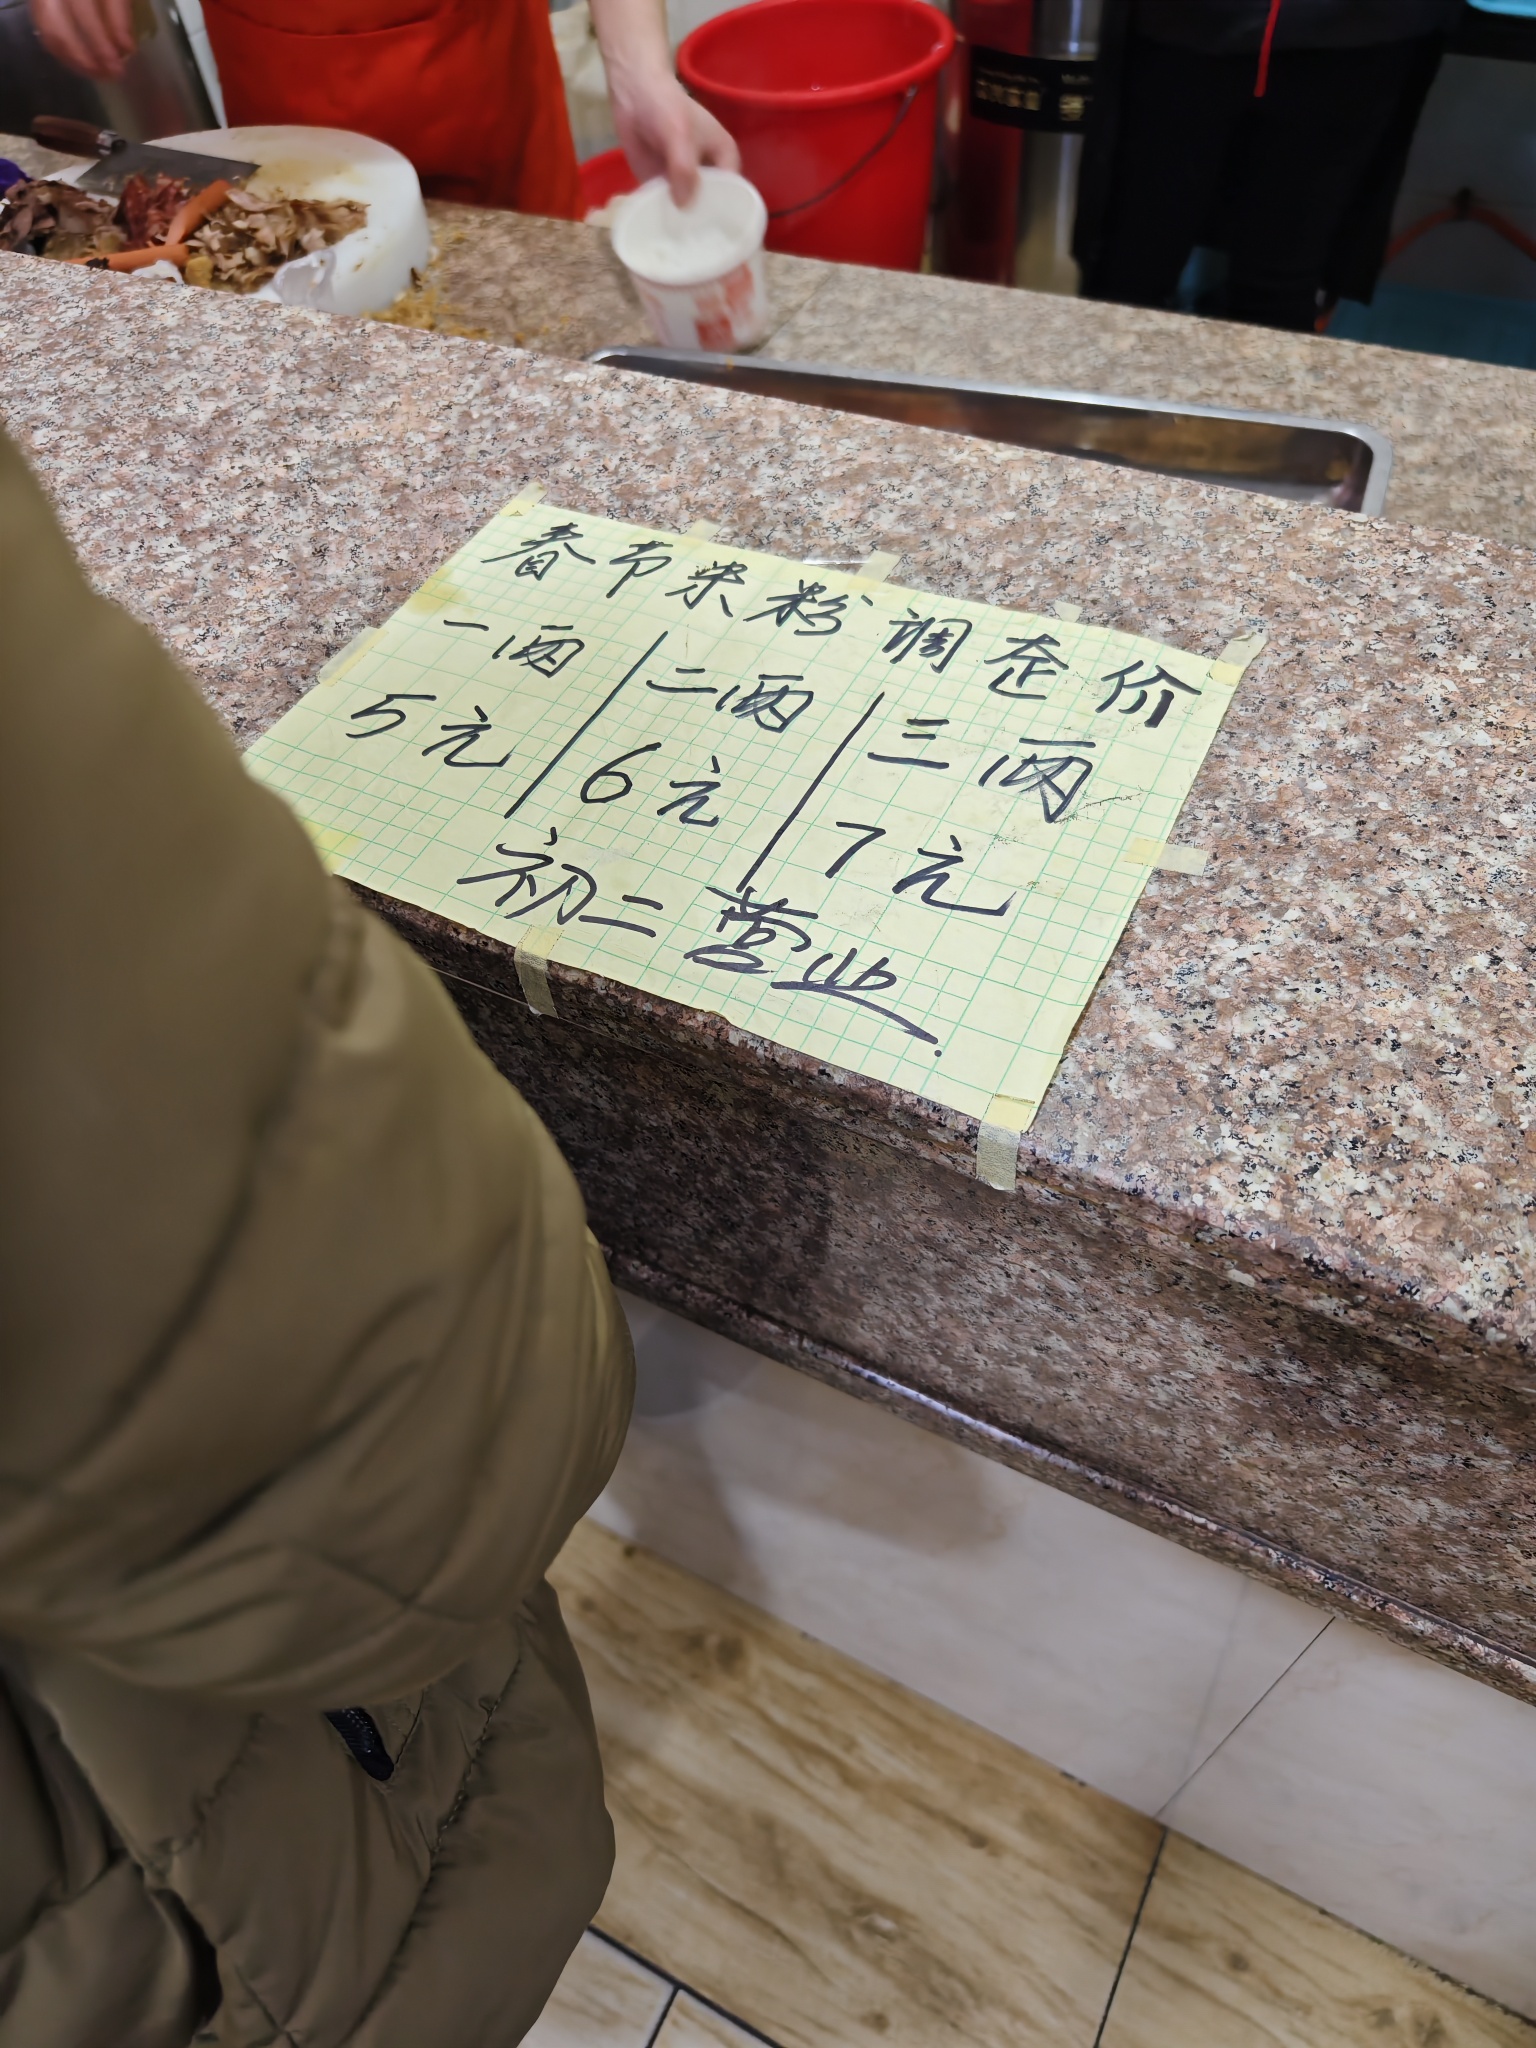 春节米粉调整价
一两 二两 三两
5元 6元 7元
初二营业.